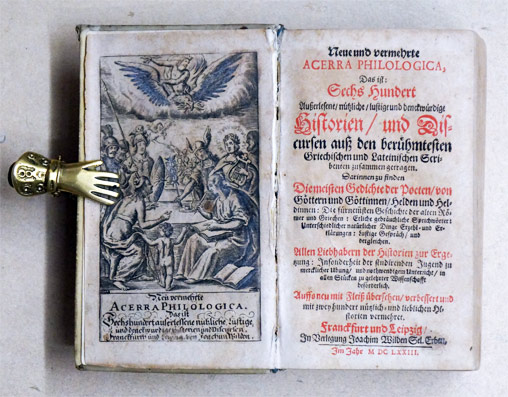 Neu vermehrte
ACERRA PHILOLOGICA.
Das ist
Sechshundert auserlesene nützliche, lustige,
und denckwürdige Historien und Discursen,
Franckfurt und Leipzig, bey Joachim Wilden.
Neue und vermehrte
ACERRA PHILOLOGICA,
Das ist:
Sechs Hundert
Außerlesene/ nützliche/ lustige und denckwürdige
Historien/ und Dis-
cursen auß den berühmtesten
Griechischen und Lateinischen Scri-
benten zusammen getragen.
Darinnen zu finden
Die meisten Gedichte der Poeten/ von
Göttern und Göttinnen/ Helden und Hel-
dinnen: Die fürnemsten Geschichte der alten Rö-
mer und Griechen: Etliche gebräuchliche Sprichwörter:
Unterschiedlicher natürlicher Dinge Erzehl- und Er-
klärungen: Lustige Gespräch/ und
dergleichen.
Allen Liebhabern der Historien zur Erge-
tzung: Insonderheit der studirenden Jugend zu
mercklicher Ubung/ und nothwendigem Unterricht/ in
allen Stücken zu gelehrter Wissenschafft
beförderlich.
Auffs neu mit Fleiß übersehen/ verbessert und
mit zweyhundert nützlich- und lieblichen Hi-
storien vermehret.
Franckfurt und Leipzig/
In Verlegung Joachim Wilden Sel. Erben,
Im Jahr M DC LXXIII.